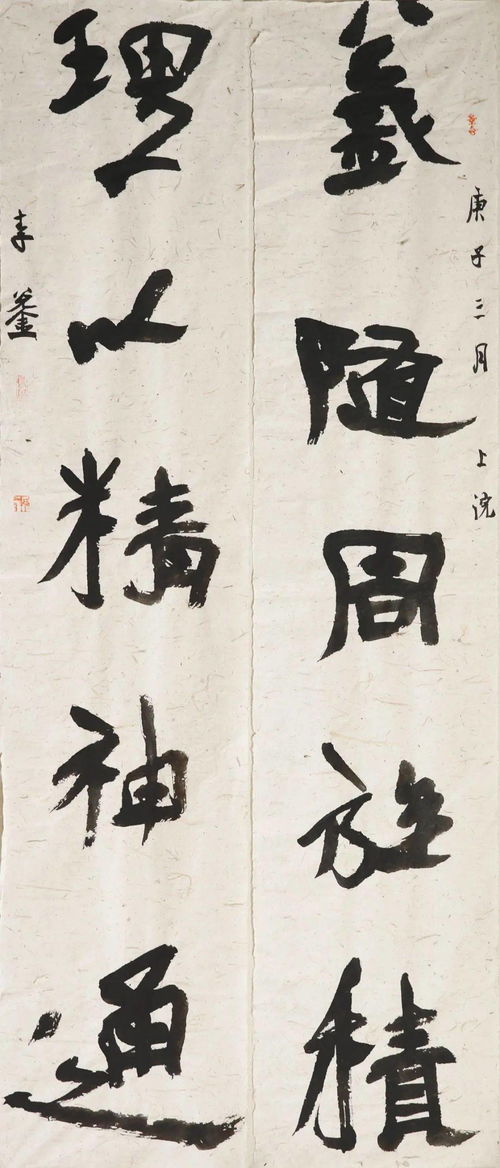 庚子三月上浣
義随周旋積
理以精神通